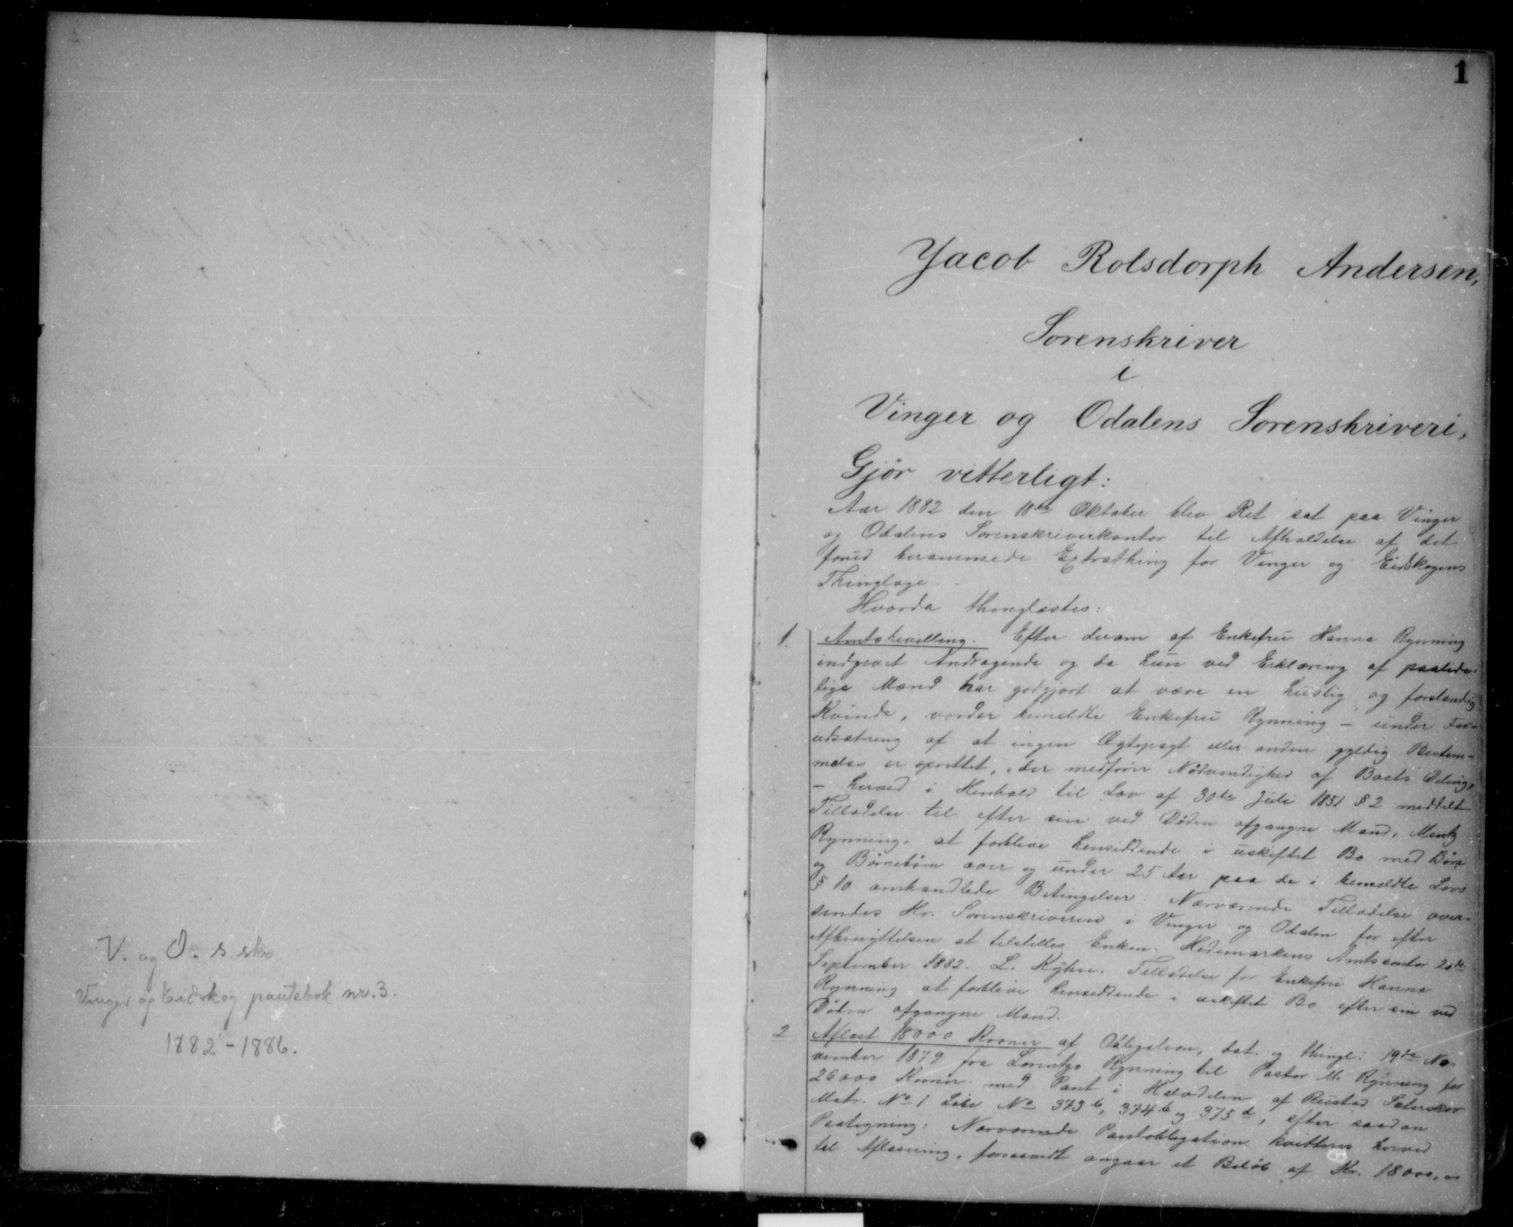 V. og O. s.skr.
Vinger og Eidskog pantebok nr. 3.
1882 - 1886.
1
Jacob Rolsdorph Andersen,
Sorenskriver
i
Vinger og Odalens Sorenskriveri,
Gjör vitterligt:
Aar 1882 den 18de Oktober blev Ret sat paa Vinger
og Odalens Sorenskriverkontor til Afholdelse af det
forud berammede Extrathing for Vinger og Eidskogens
Thinglage.
Hvorda thinglæstes:
1. Amtsbevilling. Efter derom af Enkefru Hanna Rynning
indgivet Andragende og da hun ved Erklæring af paalide-
lige Mænd har godgjort at være en huslig og forstandig
Kvinde, vorder bemeldte Enkefru Rynning – under For-
udsætning af at ingen Ægtepagt eller anden gyldig Bestem-
melse er oprettet, der medfører Nödvendighed af Boets Deling,
– herved i Henhold til Lov af 30te Juli 1851 § 2 meddelt
Tilladelse til efter sin ved Döden afgangne Mand, Mentz
Rynning, at forblive hensiddende i uskiftet Bo med Börn
og Börnebörn over og under 25 Aar paa de i bemeldte Lovs
§ 10 omhandlede Betingelser. Nærværende Tilladelse over-
sendes Hr. Sorenskriveren i Vinger og Odalen for efter
Afbenyttelsen at tilstilles Enken. Hedemarkens Amtscontor 20de
September 1882. L. Kyhn. Tilladelse for Enkefru Hanna
Rynning at forblive hensiddende i uskiftet Bo efter sin ved
Döden afgangne Mand.
2 Aflæst 18000 Kroner af Obligation, dat. og thingl. 19de No-
vember 1879 fra Lorentz Rynning til Pastor M. Rynning for
26000 Kroner med Pant i Halvdelen af Rustad Sæterskov
Matr. No 1 Löbe No 373b, 374b og 375d, efter saadan
Paategning: Nærværende Pantobligation kvitteres herved
til Aflæsning, forsaavidt angaar et Belöb af Kr. 18000,00